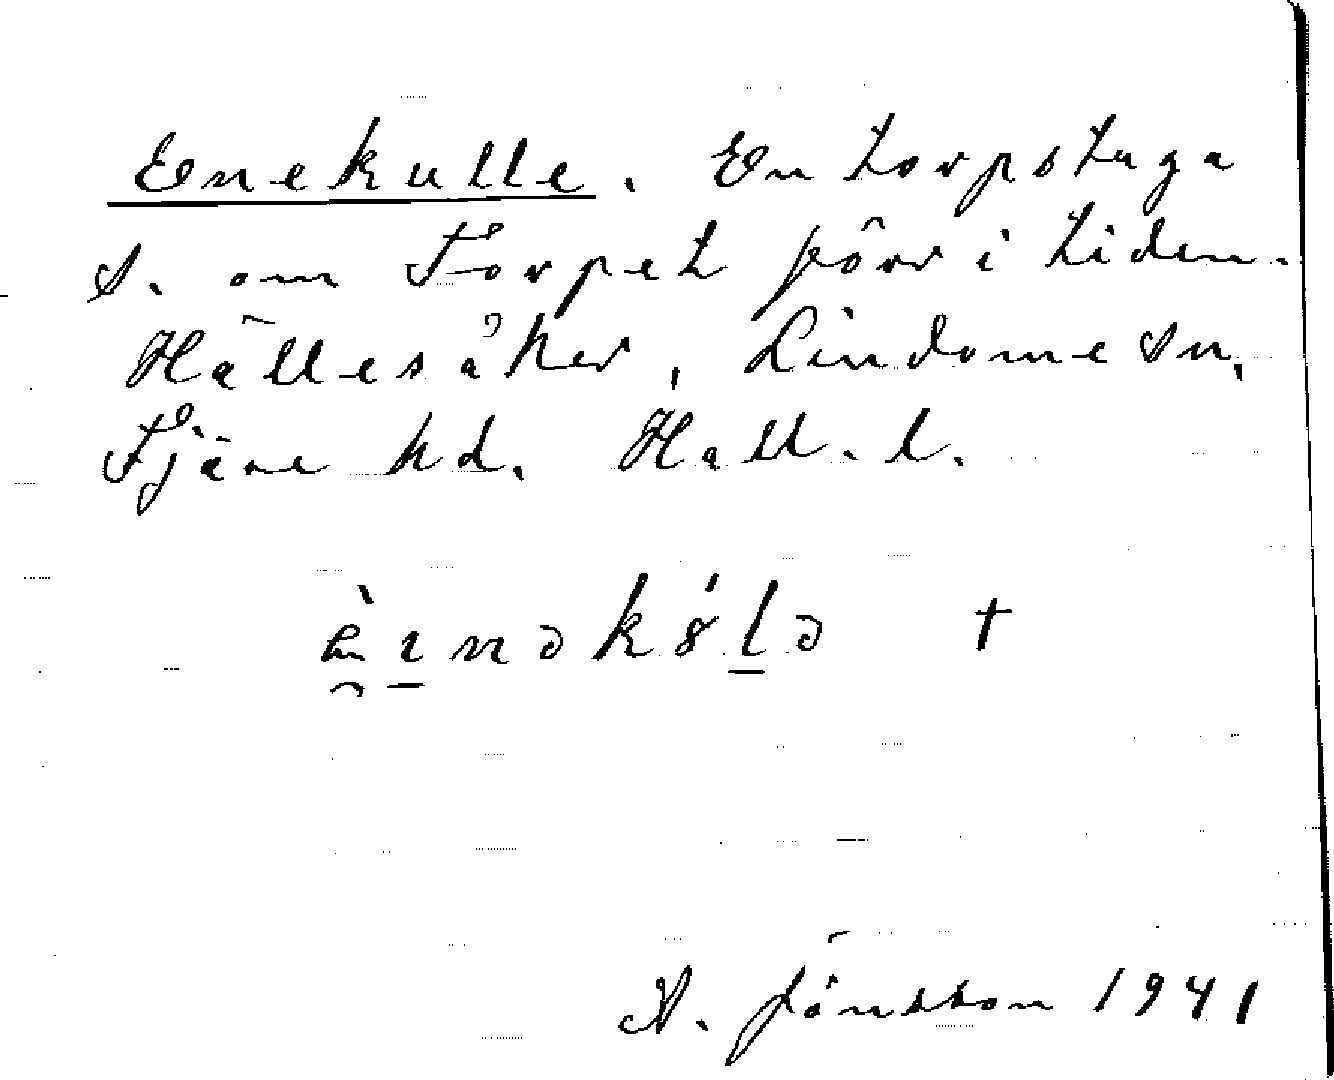 Enekulle. En torpstuga
S. om Torpet förr i tiden.
Hällesåker, Lindome sn,
Fjäre hd. Hall. l.
†
N. Jönsson 1941